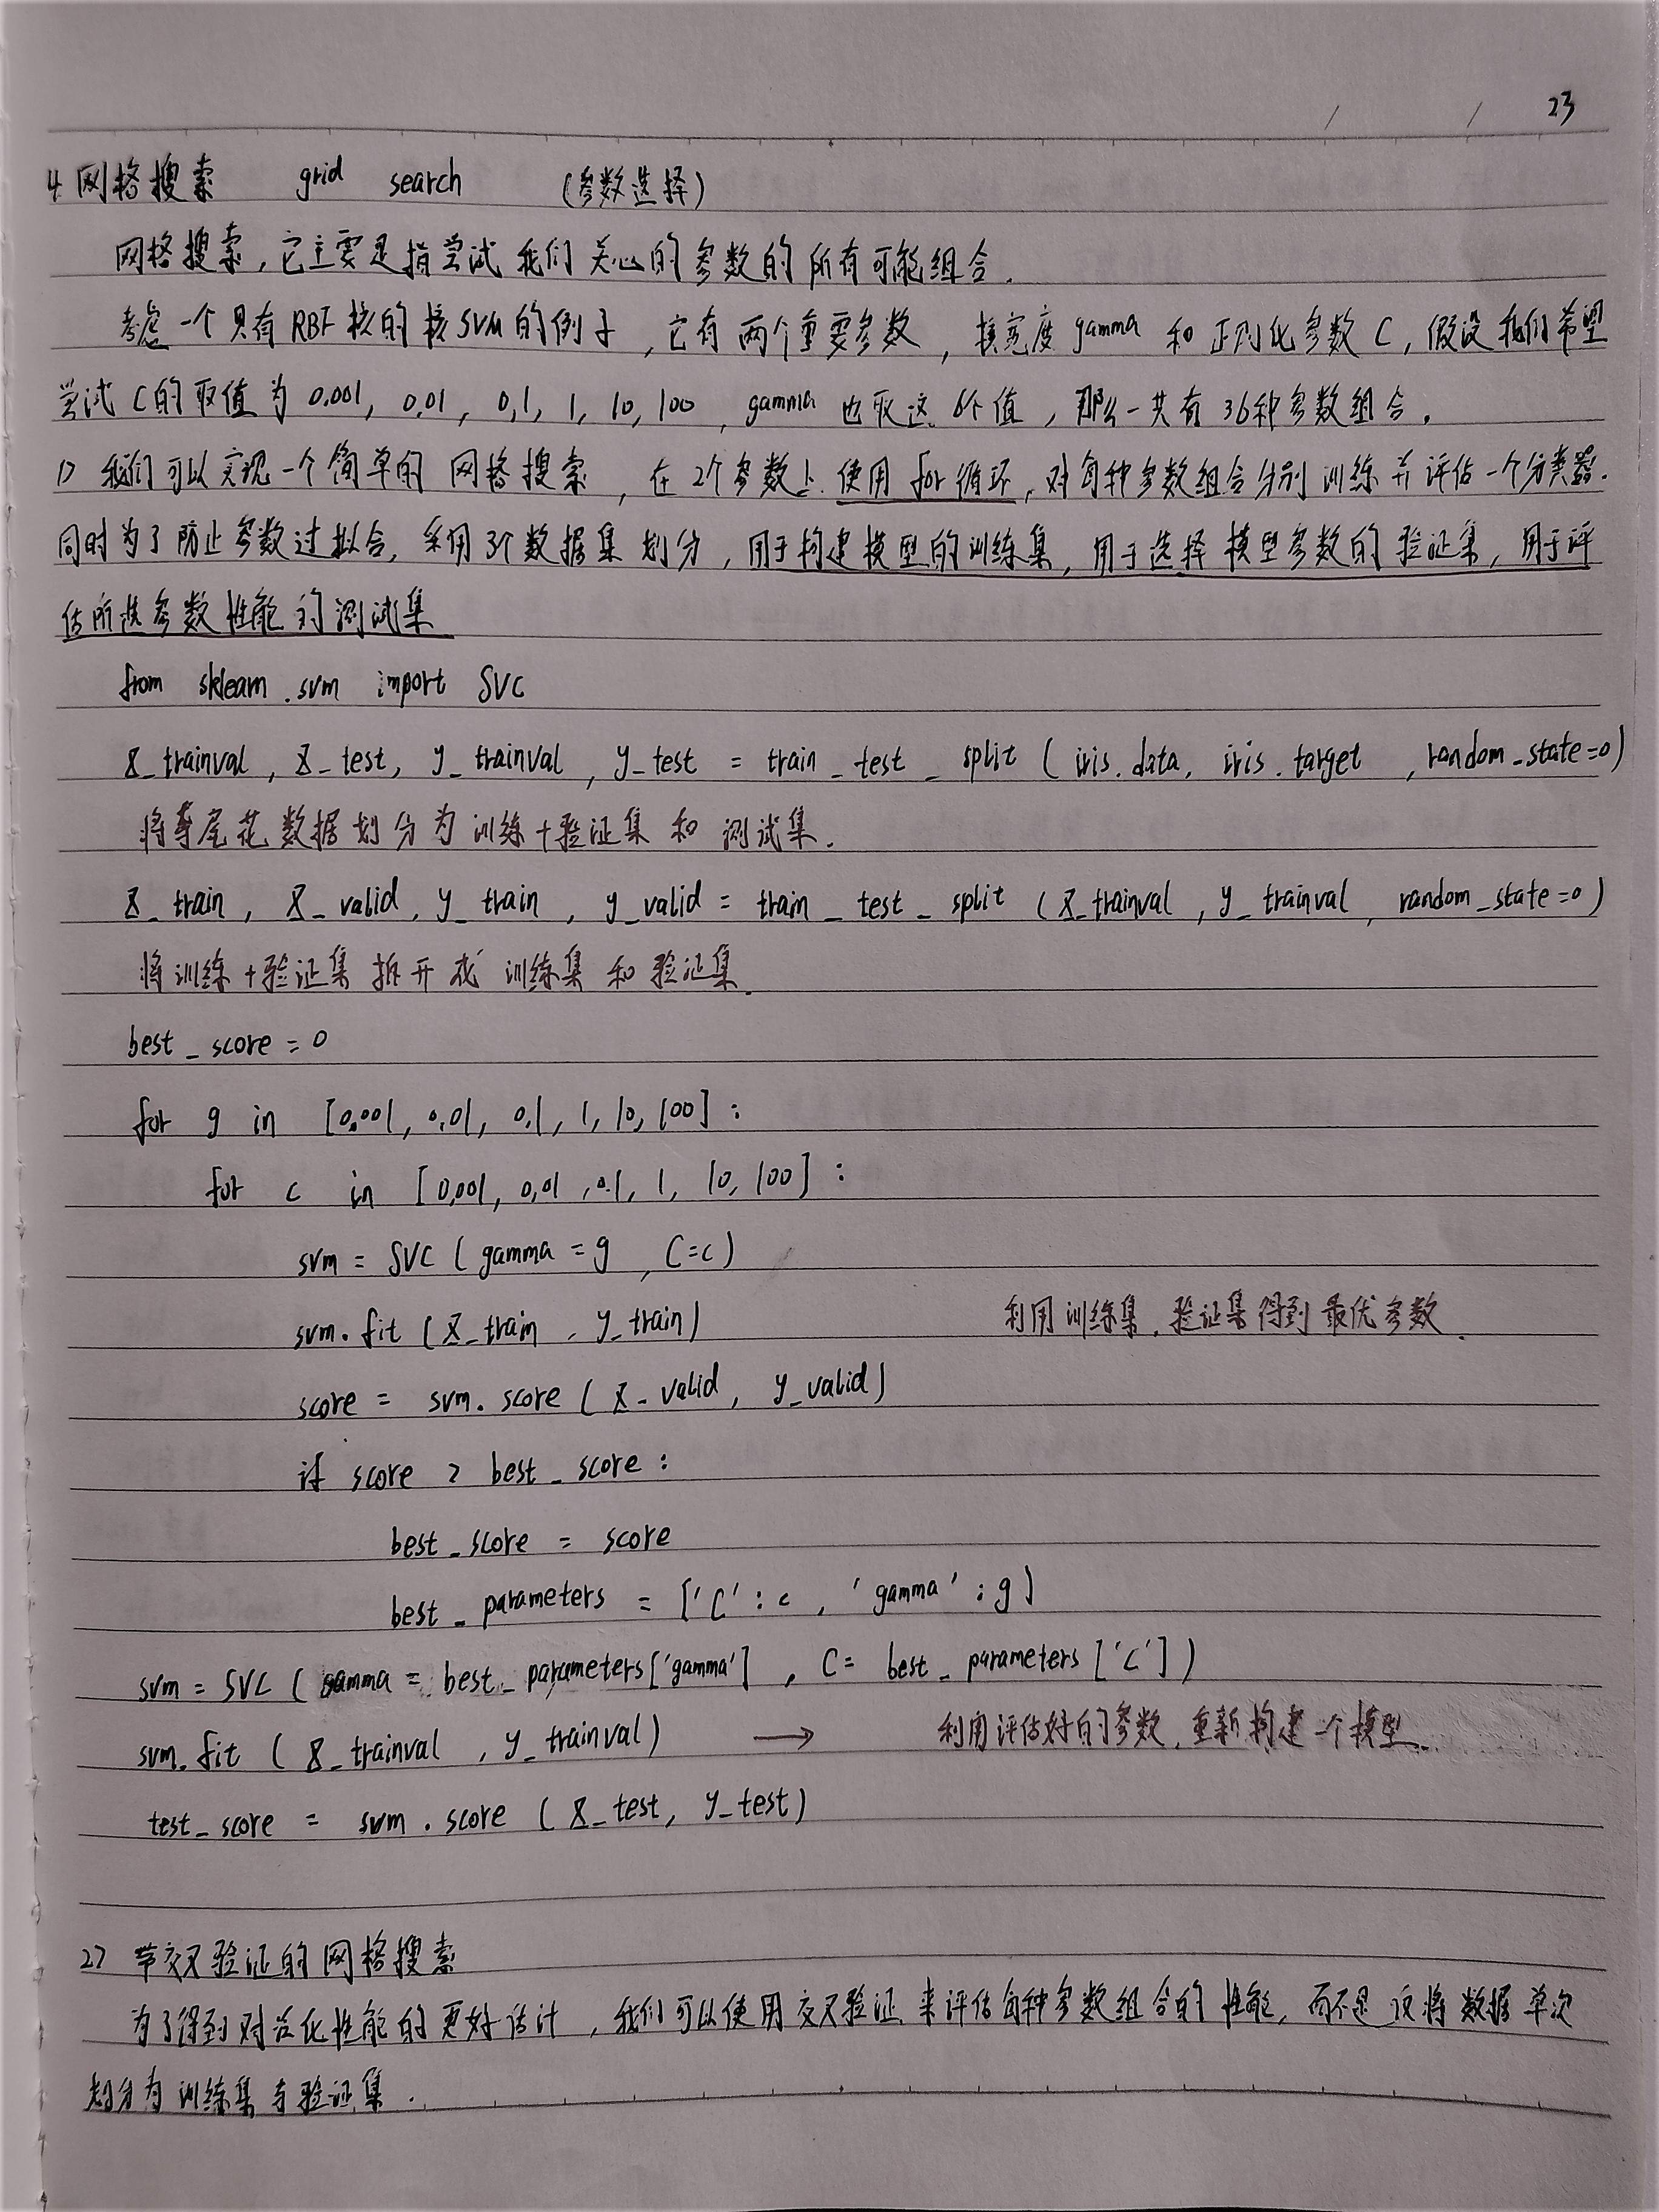 23
4.网格搜索 grid search (参数选择)
网格搜索,它主要是指尝试我们关心的参数的所有可能组合.
考虑一个具有RBF核的核SVM的例子,它有两个重要参数,核宽度gamma和正则化参数C,假设我们希望
尝试C的取值为0.001, 0.01, 0.1, 1, 10, 100, gamma也取这6个值,那么一共有36种参数组合.
1> 我们可以实现一个简单的网格搜索,在2个参数上使用for循环,对每种参数组合分别训练并评估一个分类器.
同时为了防止参数过拟合,采用3个数据集划分,用于构建模型的训练集,用于选择模型参数的验证集,用于评
估所选参数性能的测试集
from sklearn.svm import SVC
X_trainval, X_test, y_trainval, y_test = train_test_split (iris.data, iris.target, random_state=0)
将鸢尾花数据划分为训练+验证集和测试集.
X_train, X_valid, y_train, y_valid = train_test_split (X_trainval, y_trainval, random_state=0)
将训练+验证集拆开成训练集和验证集.
best_score = 0
for g in [0.001, 0.01, 0.1, 1, 10, 100] :
for c in [0.001, 0.01, 0.1, 1, 10, 100] :
svm = SVC (gamma = g, C=c)
svm.fit (X_train, y_train) 利用训练集,验证集得到最优参数.
score = svm.score (X_valid, y_valid)
if score > best_score :
best_score = score
best_parameters = ['C' : c, 'gamma' : g]
svm = SVC (gamma = best_parameters['gamma'], C= best_parameters ['C'])
svm.fit (X_trainval, y_trainval) → 利用评估好的参数,重新构建一个模型.
test_score = svm.score (X_test, y_test)
2> 带交叉验证的网格搜索
为了得到对泛化性能的更好估计,我们可以使用交叉验证来评估每种参数组合的性能,而不是仅将数据单次
划分为训练集与验证集.